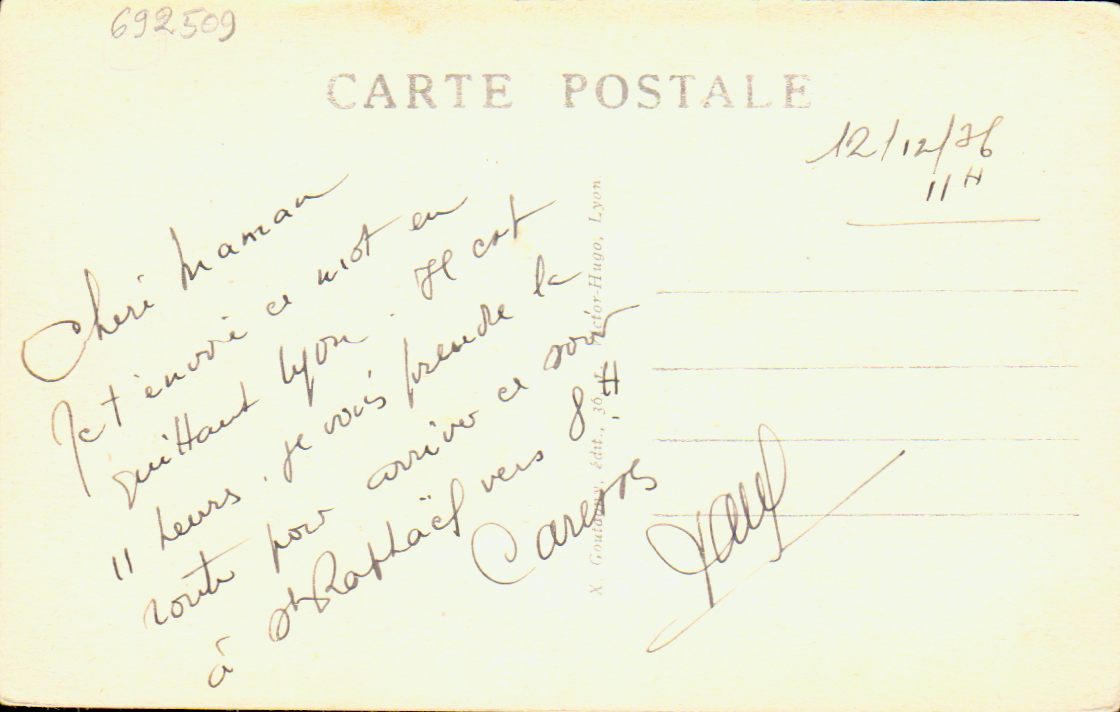 692509
CARTE POSTALE
12/12/36
11 H
Cheri Maman
Je t'envoie ce mot en
quittant Lyon. Il est
11 heurs. je vais prendre la
route pour arriver ce soir
à St Raphaël vers 8 H
Caresses
X. Goutagny, édit., 36, Victor-Hugo, Lyon